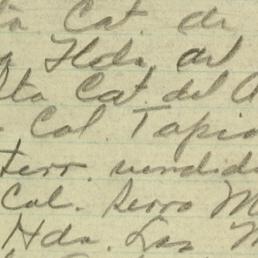 Cat. de
Hda. del
Cat. del
Col. Tapia
terr. vendido
Col. Serro M
Hda. Las